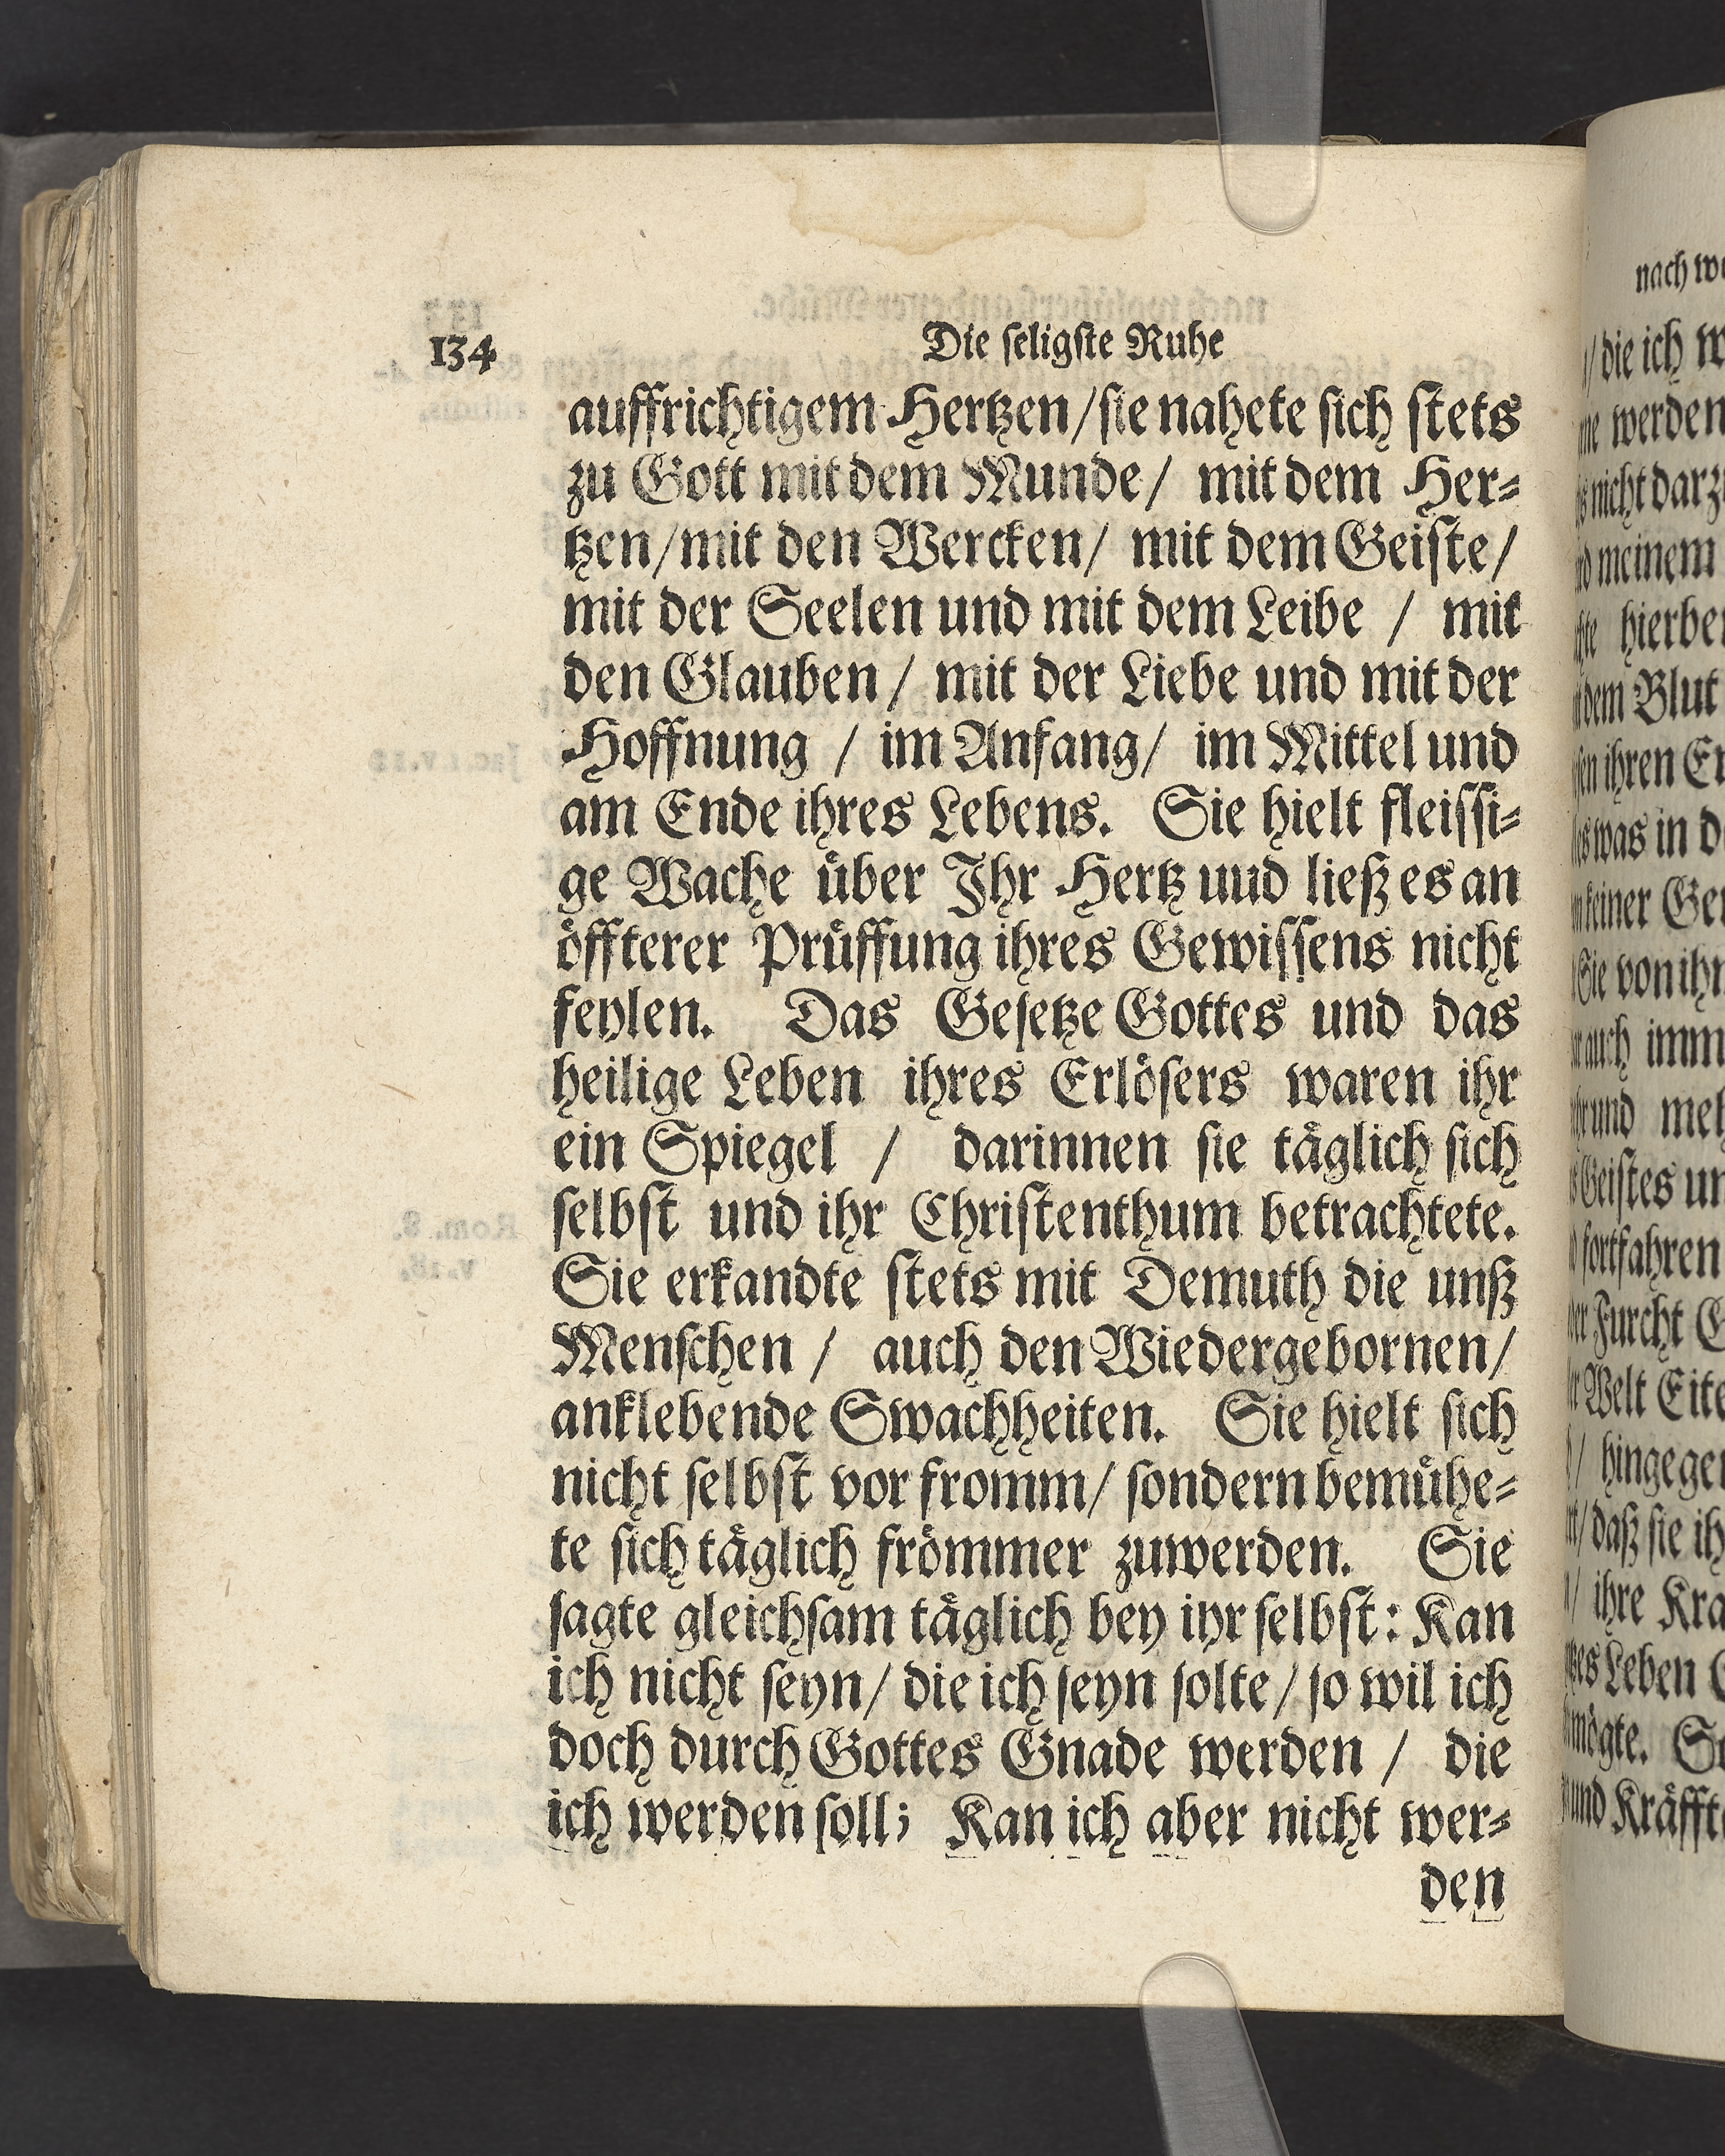 134 Die seligste Ruhe
auffrichtigem Hertzen/sie nahete sich stets
zu Gott mit dem Munde/ mit dem Her⸗
tzen/mit den Wercken/ mit dem Geiste/
mit der Seelen und mit dem Leibe / mit
den Glauben / mit der Liebe und mit der
Hoffnung / im Anfang/ im Mittel und
am Ende ihres Lebens. Sie hielt fleissi⸗
ge Wache über Ihr Hertz uud ließ es an
öffterer Prüffung ihres Gewissens nicht
feylen. Das Gesetze Gottes und das
heilige Leben ihres Erlösers waren ihr
ein Spiegel / darinnen sie täglich sich
selbst und ihr Christenthum betrachtete.
Sie erkandte stets mit Demuth die unß
Menschen / auch den Wiedergebornen/
anklebende Swachheiten. Sie hielt sich
nicht selbst vor fromm/ sondern bemühe⸗
te sich täglich frömmer zuwerden. Sie
sagte gleichsam täglich bey ihr selbst: Kan
ich nicht seyn/ die ich seyn solte/ so wil ich
doch durch Gottes Gnade werden / die
ich werden soll; Kan ich aber nicht wer⸗
den
nach
/ die ich
werden
nicht
meinem
dem Blut
ihren
was in
keiner
Sie von
auch
und
Geistes
fortfahren
Furcht
Welt
/ daß sie
/ ihre
Leben
mögte.
und